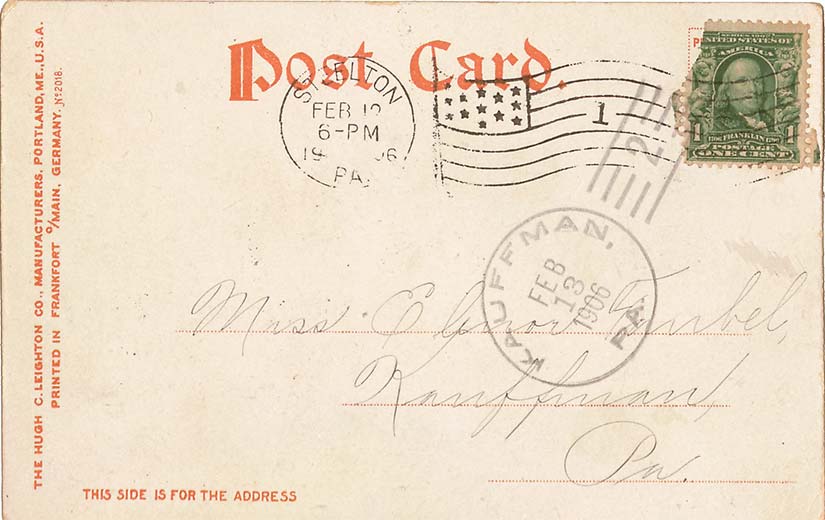 Post Card.
STEELTON
FEB 12
6-PM
1906
PA.
1
SERIES 1902
UNITED STATES OF
AMERICA
1706 FRANKLIN 1790
1 1
POSTAGE
ONE CENT
2
KAUFFMAN,
FEB
13
1906
PA.
Miss Elinor
Kauffman
Pa.
THE HUGH C. LEIGHTON CO., MANUFACTURERS, PORTLAND, ME., U.S.A.
PRINTED IN FRANKFORT O/MAIN, GERMANY. No 2018.
THIS SIDE IS FOR THE ADDRESS